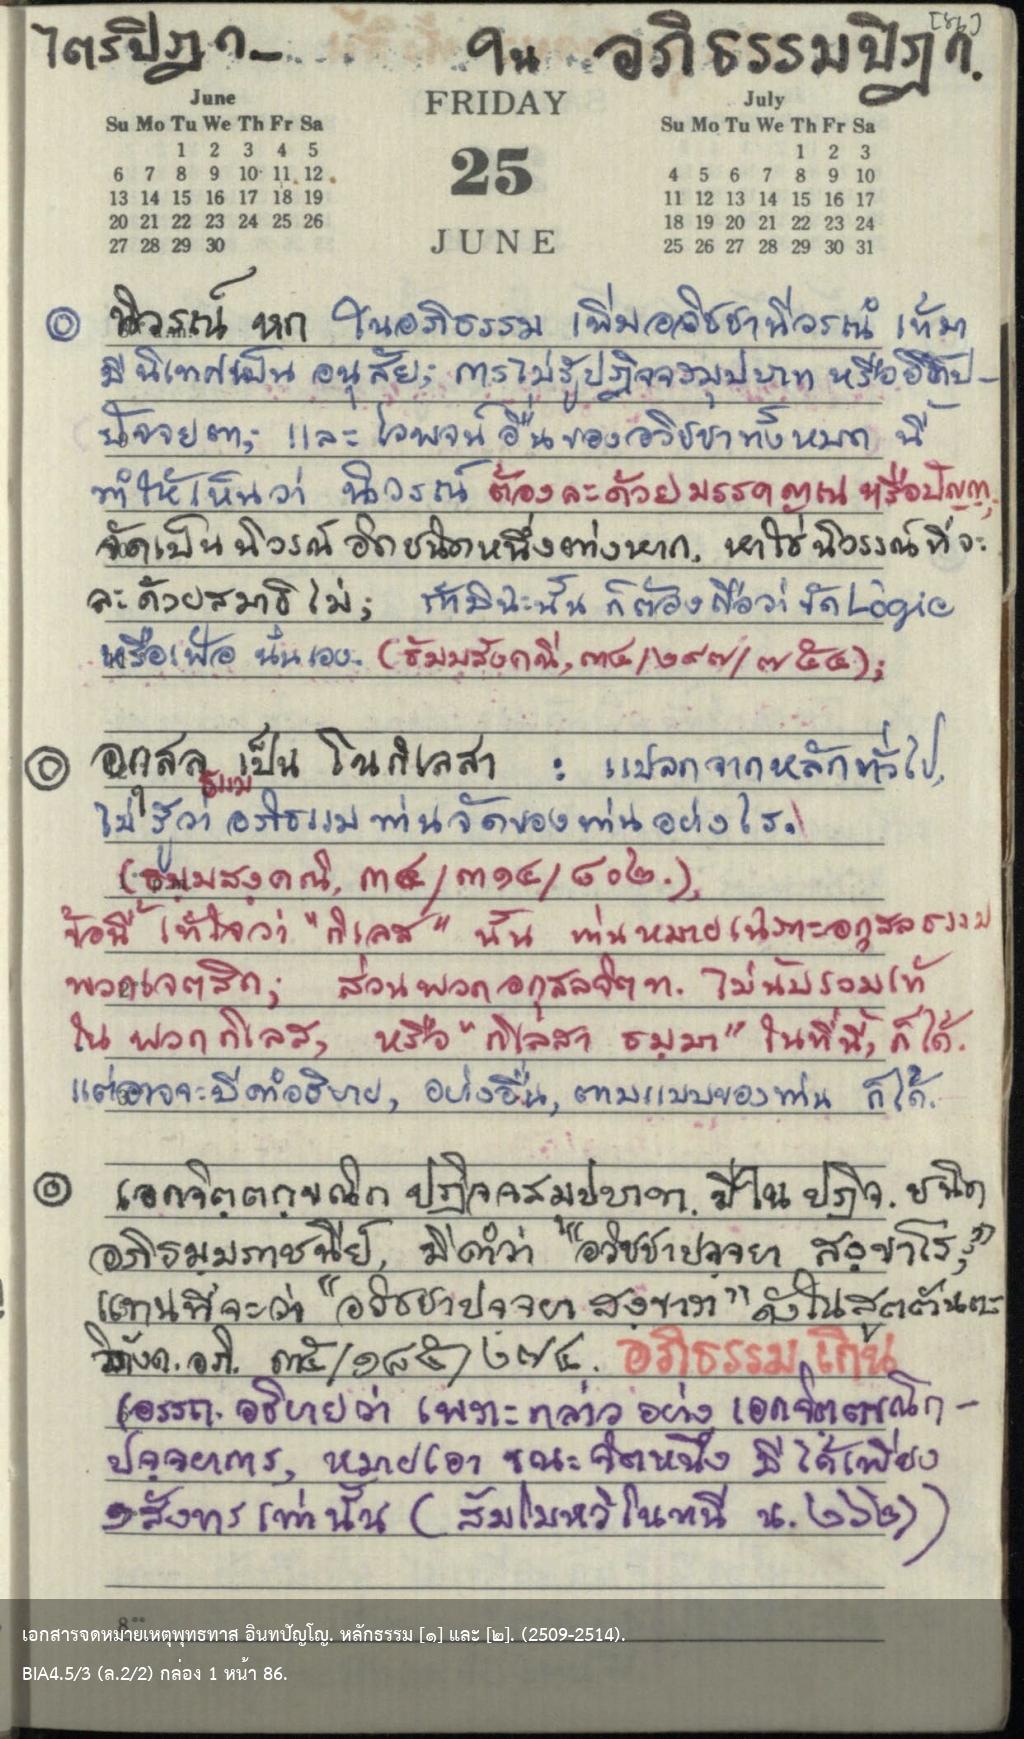 [86]
ไตรปิฎก - ใน อภิธรรมปิฎก.
June
Su Mo Tu We Th Fr Sa
1 2 3 4 5
6 7 8 9 10 11 12
13 14 15 16 17 18 19
20 21 22 23 24 25 26
27 28 29 30
FRIDAY
25
JUNE
July
Su Mo Tu We Th Fr Sa
1 2 3
4 5 6 7 8 9 10
11 12 13 14 15 16 17
18 19 20 21 22 23 24
25 26 27 28 29 30 31
นิวรณ์ หก ในอภิธรรม เพิ่มอวิชชานีวรณํ เข้มา
มีนิเทศเป็น อนุสัย; การไม่รู้ปฏิจจสมุปบาท หรืออิทัป-
ปัจจยตา; และ ไวพจน์อื่นของอวิชชาทั้งหมด นี้
ทำให้เห็นว่า นิวรณ์ ต้องละด้วยมรรคญาณ หรือปัญญา,
จัดเป็นนิวรณ์ อีกชนิดหนึ่งต่างหาก, หาใช่นิวรรณ์ที่จะ
ละด้วยสมาธิไม่; ถ้ามิน่ะนั้น ก็ต้องถือว่า ขัด Logic
หรือเฟ้อ นั่นเอง. (ธัมมสังคณี, ๓๔/๒๙๗/๗๕๔);
อกุสล เป็น โนกิเลสา : แปลกจากหลักทั่วไป,
ไม่รู้ว่า อภิธรรม ท่านจัดของท่านอย่างไร.
(ธมฺมสงฺคณี, ๓๔/๓๑๔/๘๐๒.),
ข้อนี้ เข้าใจว่า "กิเลส" นั้น ท่านหมายเฉพาะอกุสลธรรม
พวกเจตสิก; ส่วนพวกอกุสลจิต ท. ไม่นับรวมเข้า
ใน พวกกิเลส, หรือ "กิเลสา ธมฺมา" ในที่นี้, ก็ได้.
แต่อาจจะมีคำอธิบาย, อย่างอื่น, ตามแบบของท่าน ก็ได้.
เอกจิตฺตกฺขณิก ปฏิจจสมุปบาท, มีใน ปฏิจ. ชนิด
อภิธมฺมภาชนีย์, มีคำว่า "อวิชชาปจฺจยา สงฺขาโร,"
แทนที่จะว่า "อวิชชาปจฺจยา สงฺขารา" ดังในสุตตันตะ
วิภังค. อภิ. ๓๕/๑๘๕/๒๗๔. อภิธรรมเกิน
(อรรถ. อธิบายว่า เพราะกล่าว อย่าง เอกจิตฺตขณิก-
ปัจจยาการ, หมายเอา ขณะจิตหนึ่ง มีได้เพียง
๑ สังขาร เท่านั้น (สัมโมหวิโนทนี น. ๒๖๒))
เอกสารจดหมายเหตุพุทธทาส อินทปัญโญ. หลักธรรม [๑] และ [๒]. (2509-2514).
BIA4.5/3 (ล.2/2) กล่อง 1 หน้า 86.